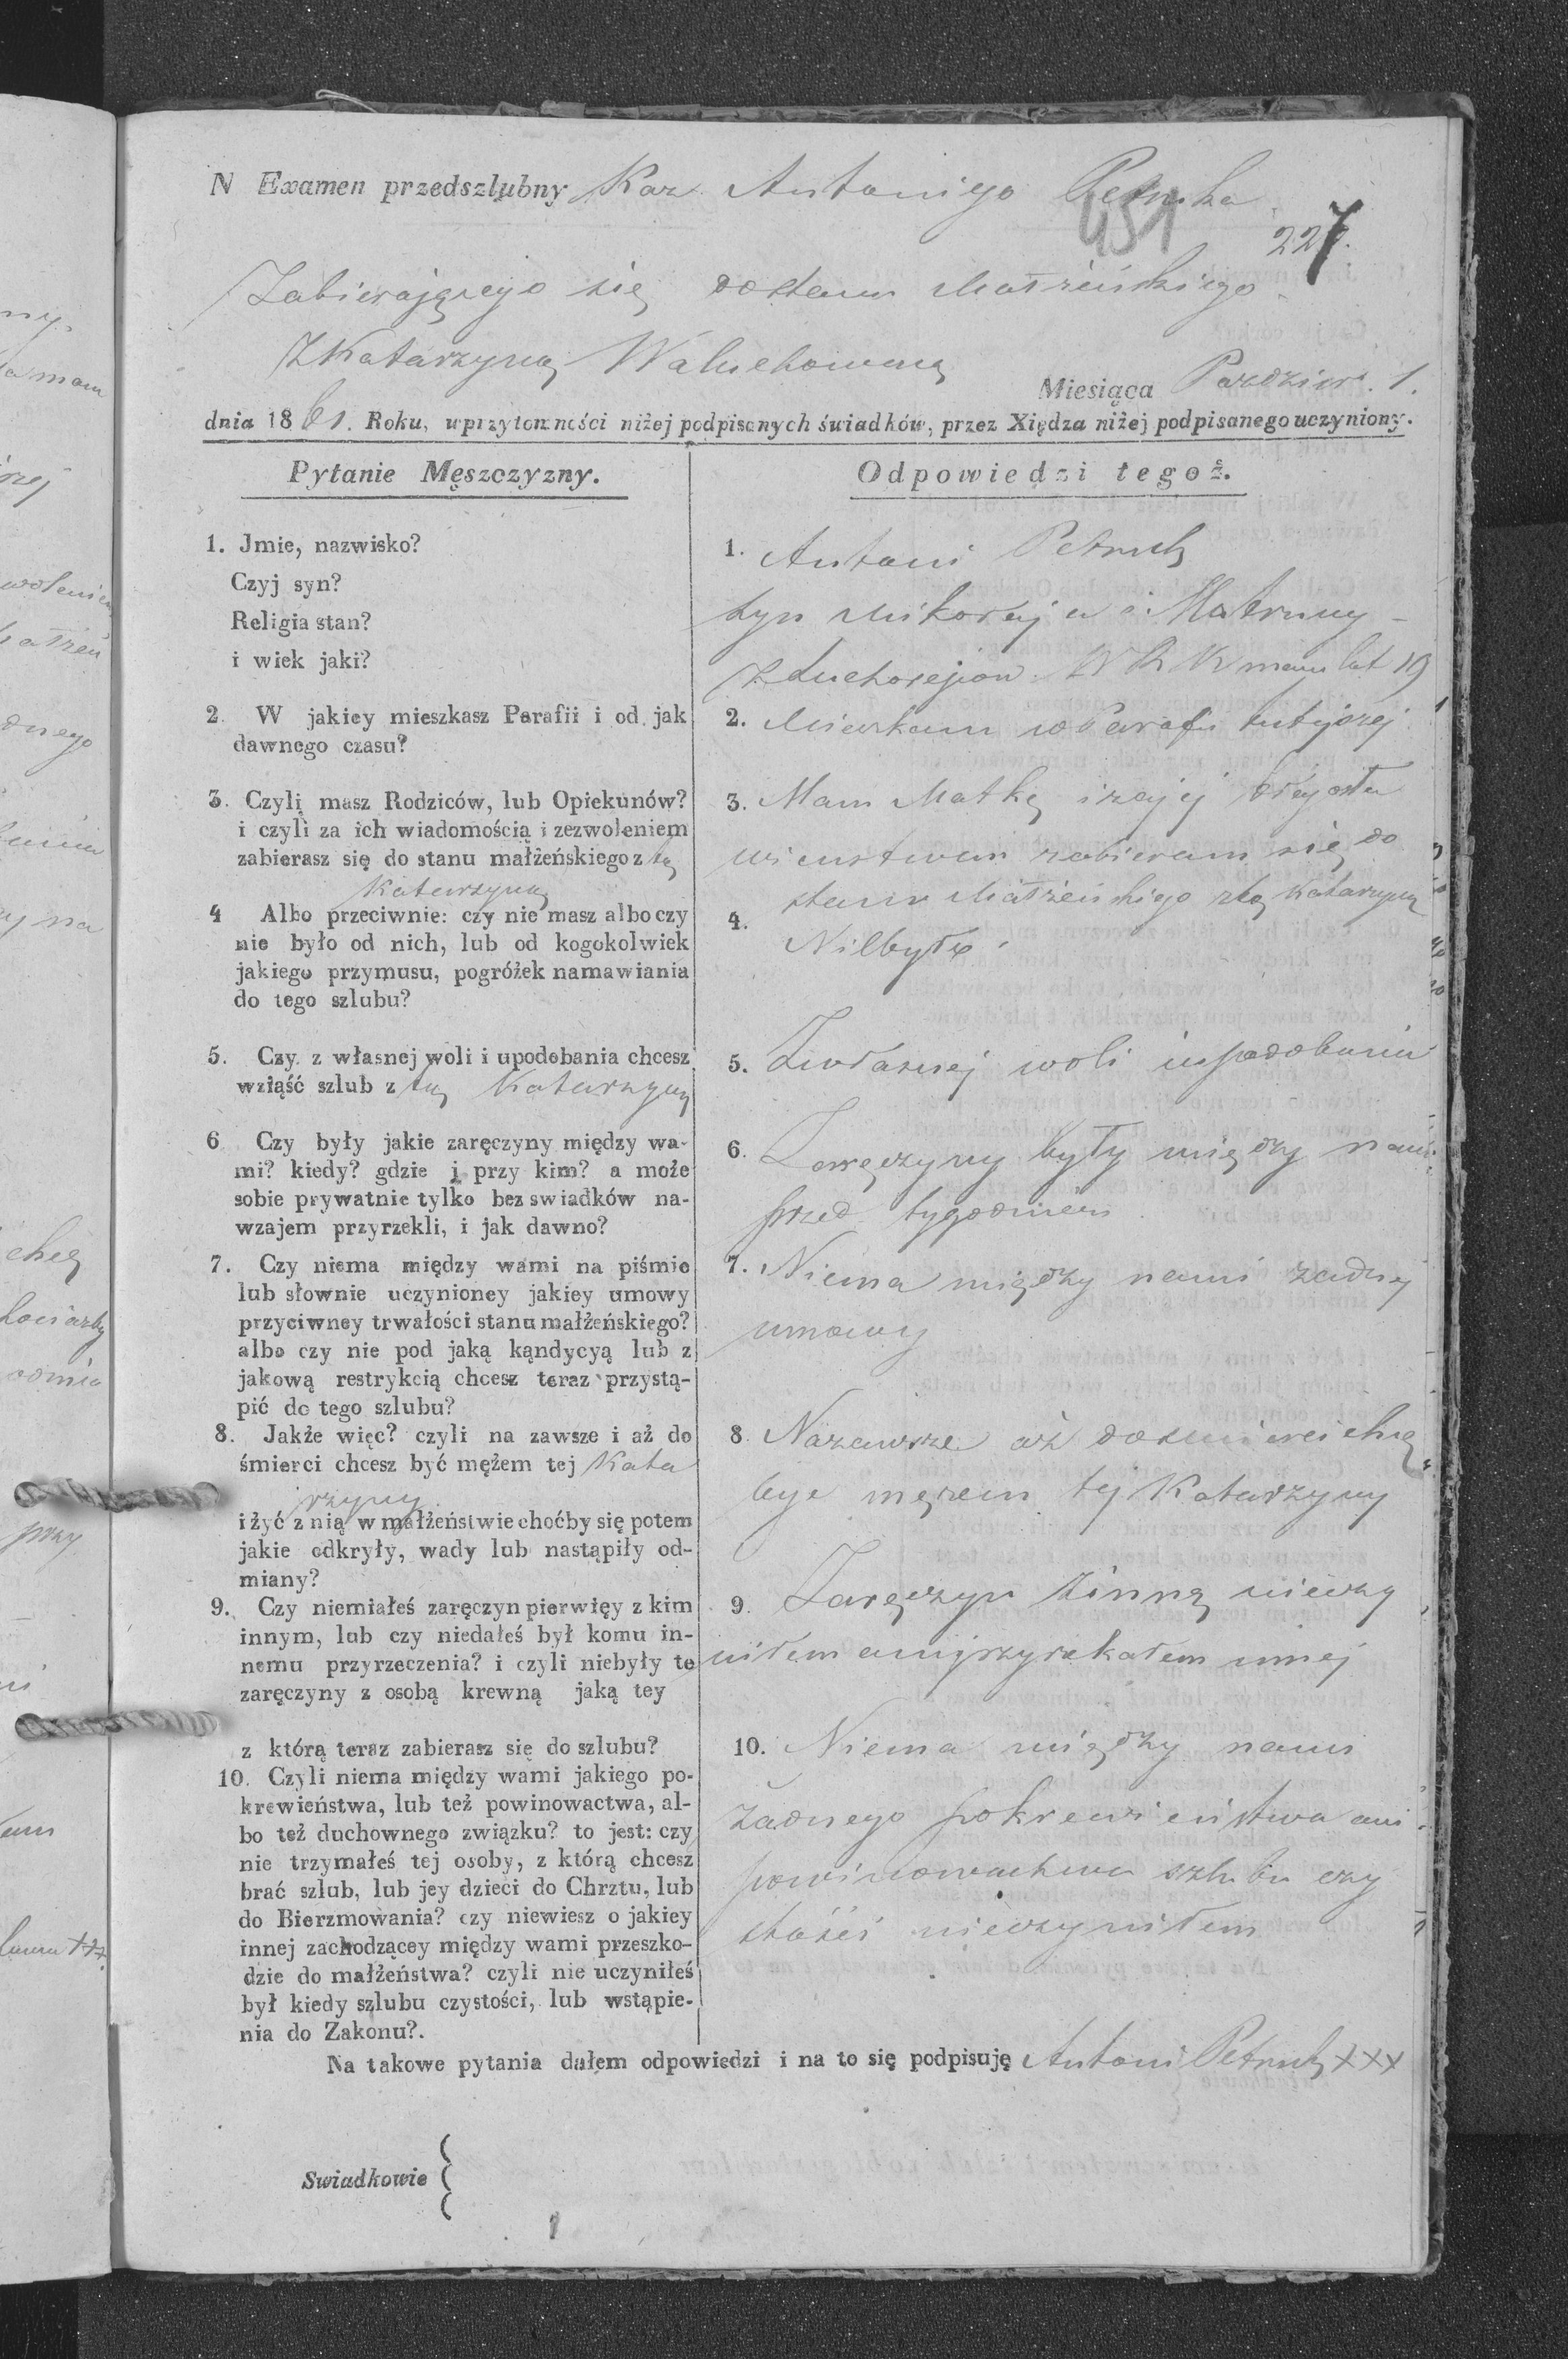 N Examen przedszlubny Kaw Antoniego Petruka
451
227.
Zabierającego się do stanu Małżeńskiego
Z Katarzyną Waluchowną
Miesiąca Pazdzier. 1.
dnia 1861. Roku, w przytomności niżej podpisanych świadków, przez Xiędza niżej podpisanego uczyniony.
Pytanie Męszczyzny.
1. Jmie, nazwisko?
Czyj syn?
Religia stan?
i wiek jaki?
2. W jakiey mieszkasz Parafii i od jak
dawnego czasu?
3. Czyli masz Rodziców, lub Opiekunów?
i czyli za ich wiadomością i zezwoleniem
zabierasz się do stanu małżeńskiego z tą
Katarzyną
4 Albo przeciwnie: czy nie masz albo czy
nie było od nich, lub od kogokolwiek
jakiego przymusu, pogróżek namawiania
do tego szlubu?
5. Czy z własnej woli i upodobania chcesz
wziąść szlub z tą Katarzyną
6 Czy były jakie zaręczyny między wa-
mi? kiedy? gdzie i przy kim? a może
sobie prywatnie tylko bez swiadków na-
wzajem przyrzekli, i jak dawno?
7. Czy niema między wami na piśmie
lub słownie uczynioney jakiey umowy
przyciwney trwałości stanu małżeńskiego?
albo czy nie pod jaką kąndycyą lub z
jakową restrykcią chcesz teraz przystą-
pić do tego szlubu?
8. Jakże więc? czyli na zawsze i aż do
śmierci chcesz być mężem tej Kata
rzyny
i żyć z nią w małżeństwie choćby się potem
jakie odkryły, wady lub nastąpiły od-
miany?
9. Czy niemiałeś zaręczyn pierwięy z kim
innym, lub czy niedałeś był komu in-
nemu przyrzeczenia? i czyli niebyły te
zaręczyny z osobą krewną jaką tey
z którą teraz zabierasz się do szlubu?
10. Czyli niema między wami jakiego po-
krewieństwa, lub też powinowactwa, al-
bo też duchownego związku? to jest: czy
nie trzymałeś tej osoby, z którą chcesz
brać szlub, lub jey dzieci do Chrztu, lub
do Bierzmowania? czy niewiesz o jakiey
innej zachodzącey między wami przeszko-
dzie do małżeństwa? czyli nie uczyniłeś
był kiedy szlubu czystości, lub wstąpie-
nia do Zakonu?.
Odpowiedzi tegoż.
1. Antoni Petruk
syn Mikołaja i Matruny
W R K mam lat 19
2. Mieszkam w Parafii tutejszej
3. Mam Matkę i za jej błogosła
wienstwem zabieram się do
stanu Małżeńskiego z tą Katarzyną
4. Niebyło
5. Z własnej woli i upodobania
6. Zaręczyny były między nami
przed tygodniem
7. Niema między nami żadnej
umowy
8. Nazawsze aż do smierci chcę
byc mężem tej Katarzyny
9. Zaręczyn z inną nieczy
niłem ani przyrzekałem innej
10. Niema między nami
żadnego pokrewieństwa ani
powinowactwa szlubu czy
stości nieczyniłem
Na takowe pytania dałem odpowiedzi i na to się podpisuję Antoni Petruk XXX
Swiadkowie